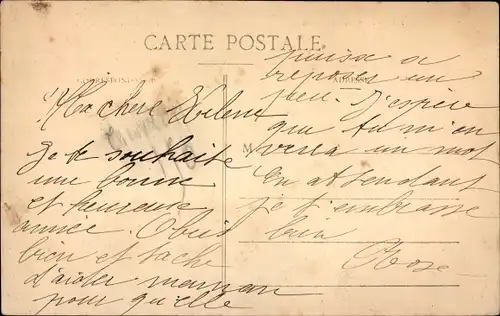 CARTE POSTALE
CORRESPONDANCE
ADRESSE
Ma chère Hélène
Je te souhaite
une bonne
et heureuse
année. Obéis
bien et tache
d'aider maman
pour qu'elle
puisse se
reposer un
peu. J'espère
que tu m'en
verra un mot
En attendant
je t'embrasse
bien
Rose